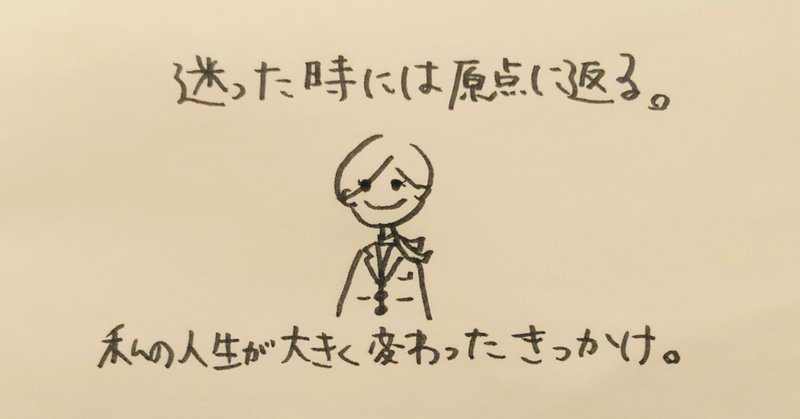 迷った時には原点に返る。
私の人生が大きく変わったきっかけ。